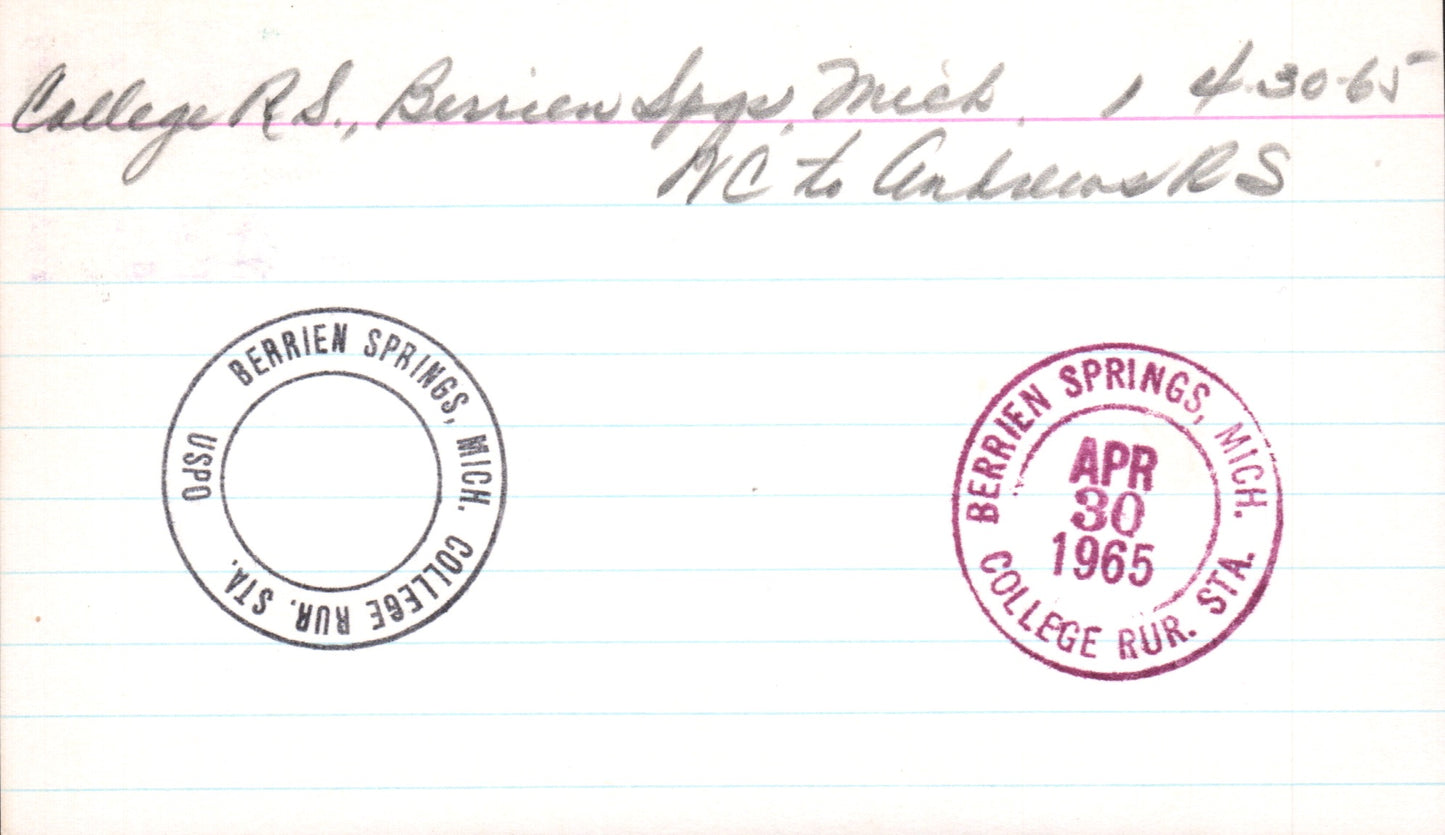 College R.S., Berrien Spgs, Mich. 1 4-30-65
NC to Andrews RS
BERRIEN SPRINGS, MICH. COLLEGE RUR. STA.
USPO
BERRIEN SPRINGS, MICH.
APR
30
1965
COLLEGE RUR. STA.